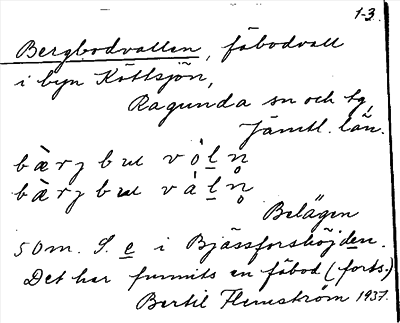 1-3.
Bergbodvallen, fäbodvall
i byn Köttsjön,
Ragunda sn och tg,
Jämtl. län.
bæ̀rʒbuɩ vòl̲n̥
bæ̀rʒbuɩ vàl̲n̥
Belägen
50m. S. e i Bjässforshöjden.
Det har funnits en fäbod (forts.)
Bertil Flemström 1937.